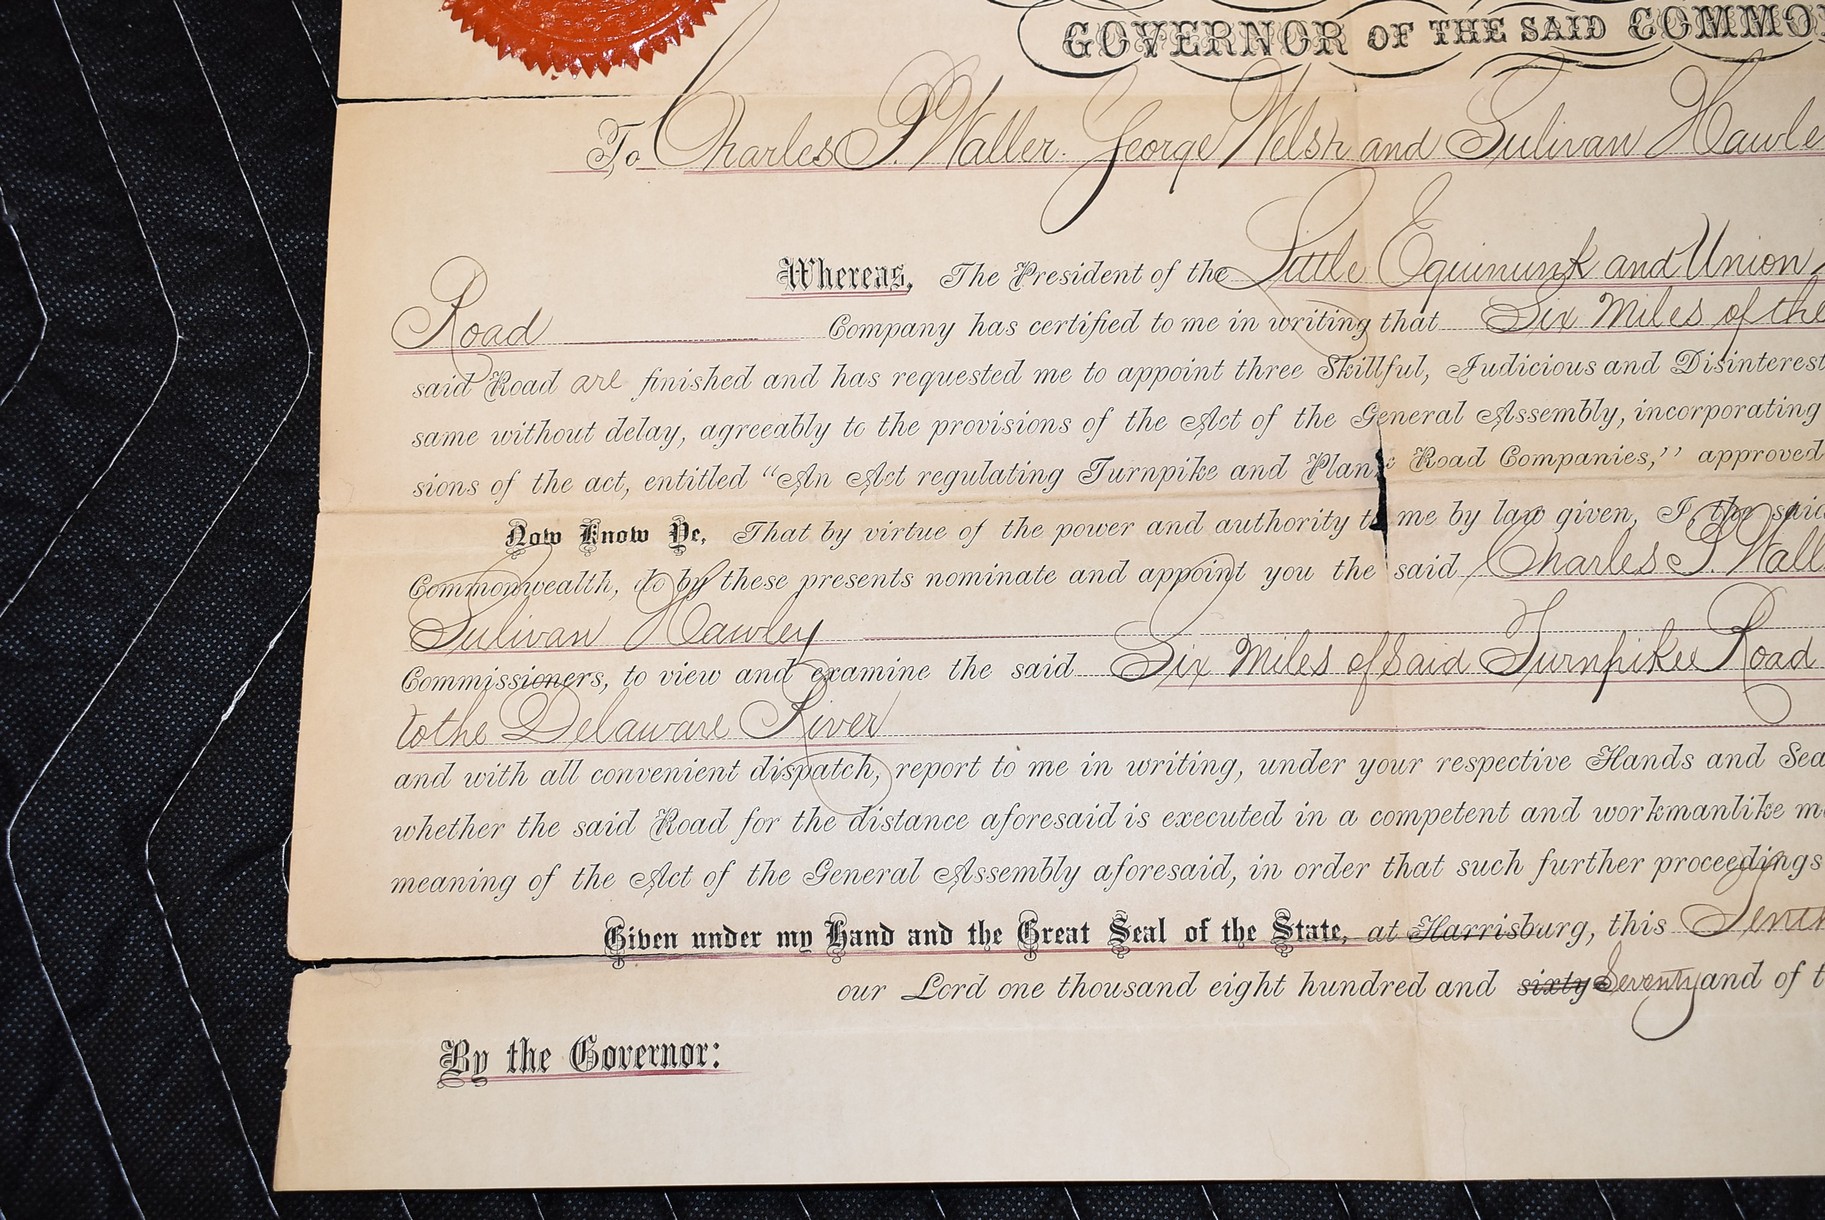 GOVERNOR OF THE SAID COMMO
To Charles P. Waller. George Welsh and Sulivan Hawle
Whereas, The President of the Little Equinunk and Union
Road Company has certified to me in writing that Six Miles of the
said Road are finished and has requested me to appoint three Skillful, Judicious and Disinterest
same without delay, agreeably to the provisions of the Act of the General Assembly, incorporating
sions of the act, entitled “An Act regulating Turnpike and Plank Road Companies,” approved
Now Know Ye, That by virtue of the power and authority to me by law given, I, the said
Commonwealth, do by these presents nominate and appoint you the said Charles P. Wall
Sulivan Hawley
Commissioners, to view and examine the said Six Miles of Said Turnpike Road
to the Delaware River
and with all convenient dispatch, report to me in writing, under your respective Hands and Sea
whether the said Road for the distance aforesaid is executed in a competent and workmanlike m
meaning of the Act of the General Assembly aforesaid, in order that such further proceedings
Given under my Hand and the Great Seal of the State, at Harrisburg, this Tenth
our Lord one thousand eight hundred and sixty Seventy and of t
By the Governor: